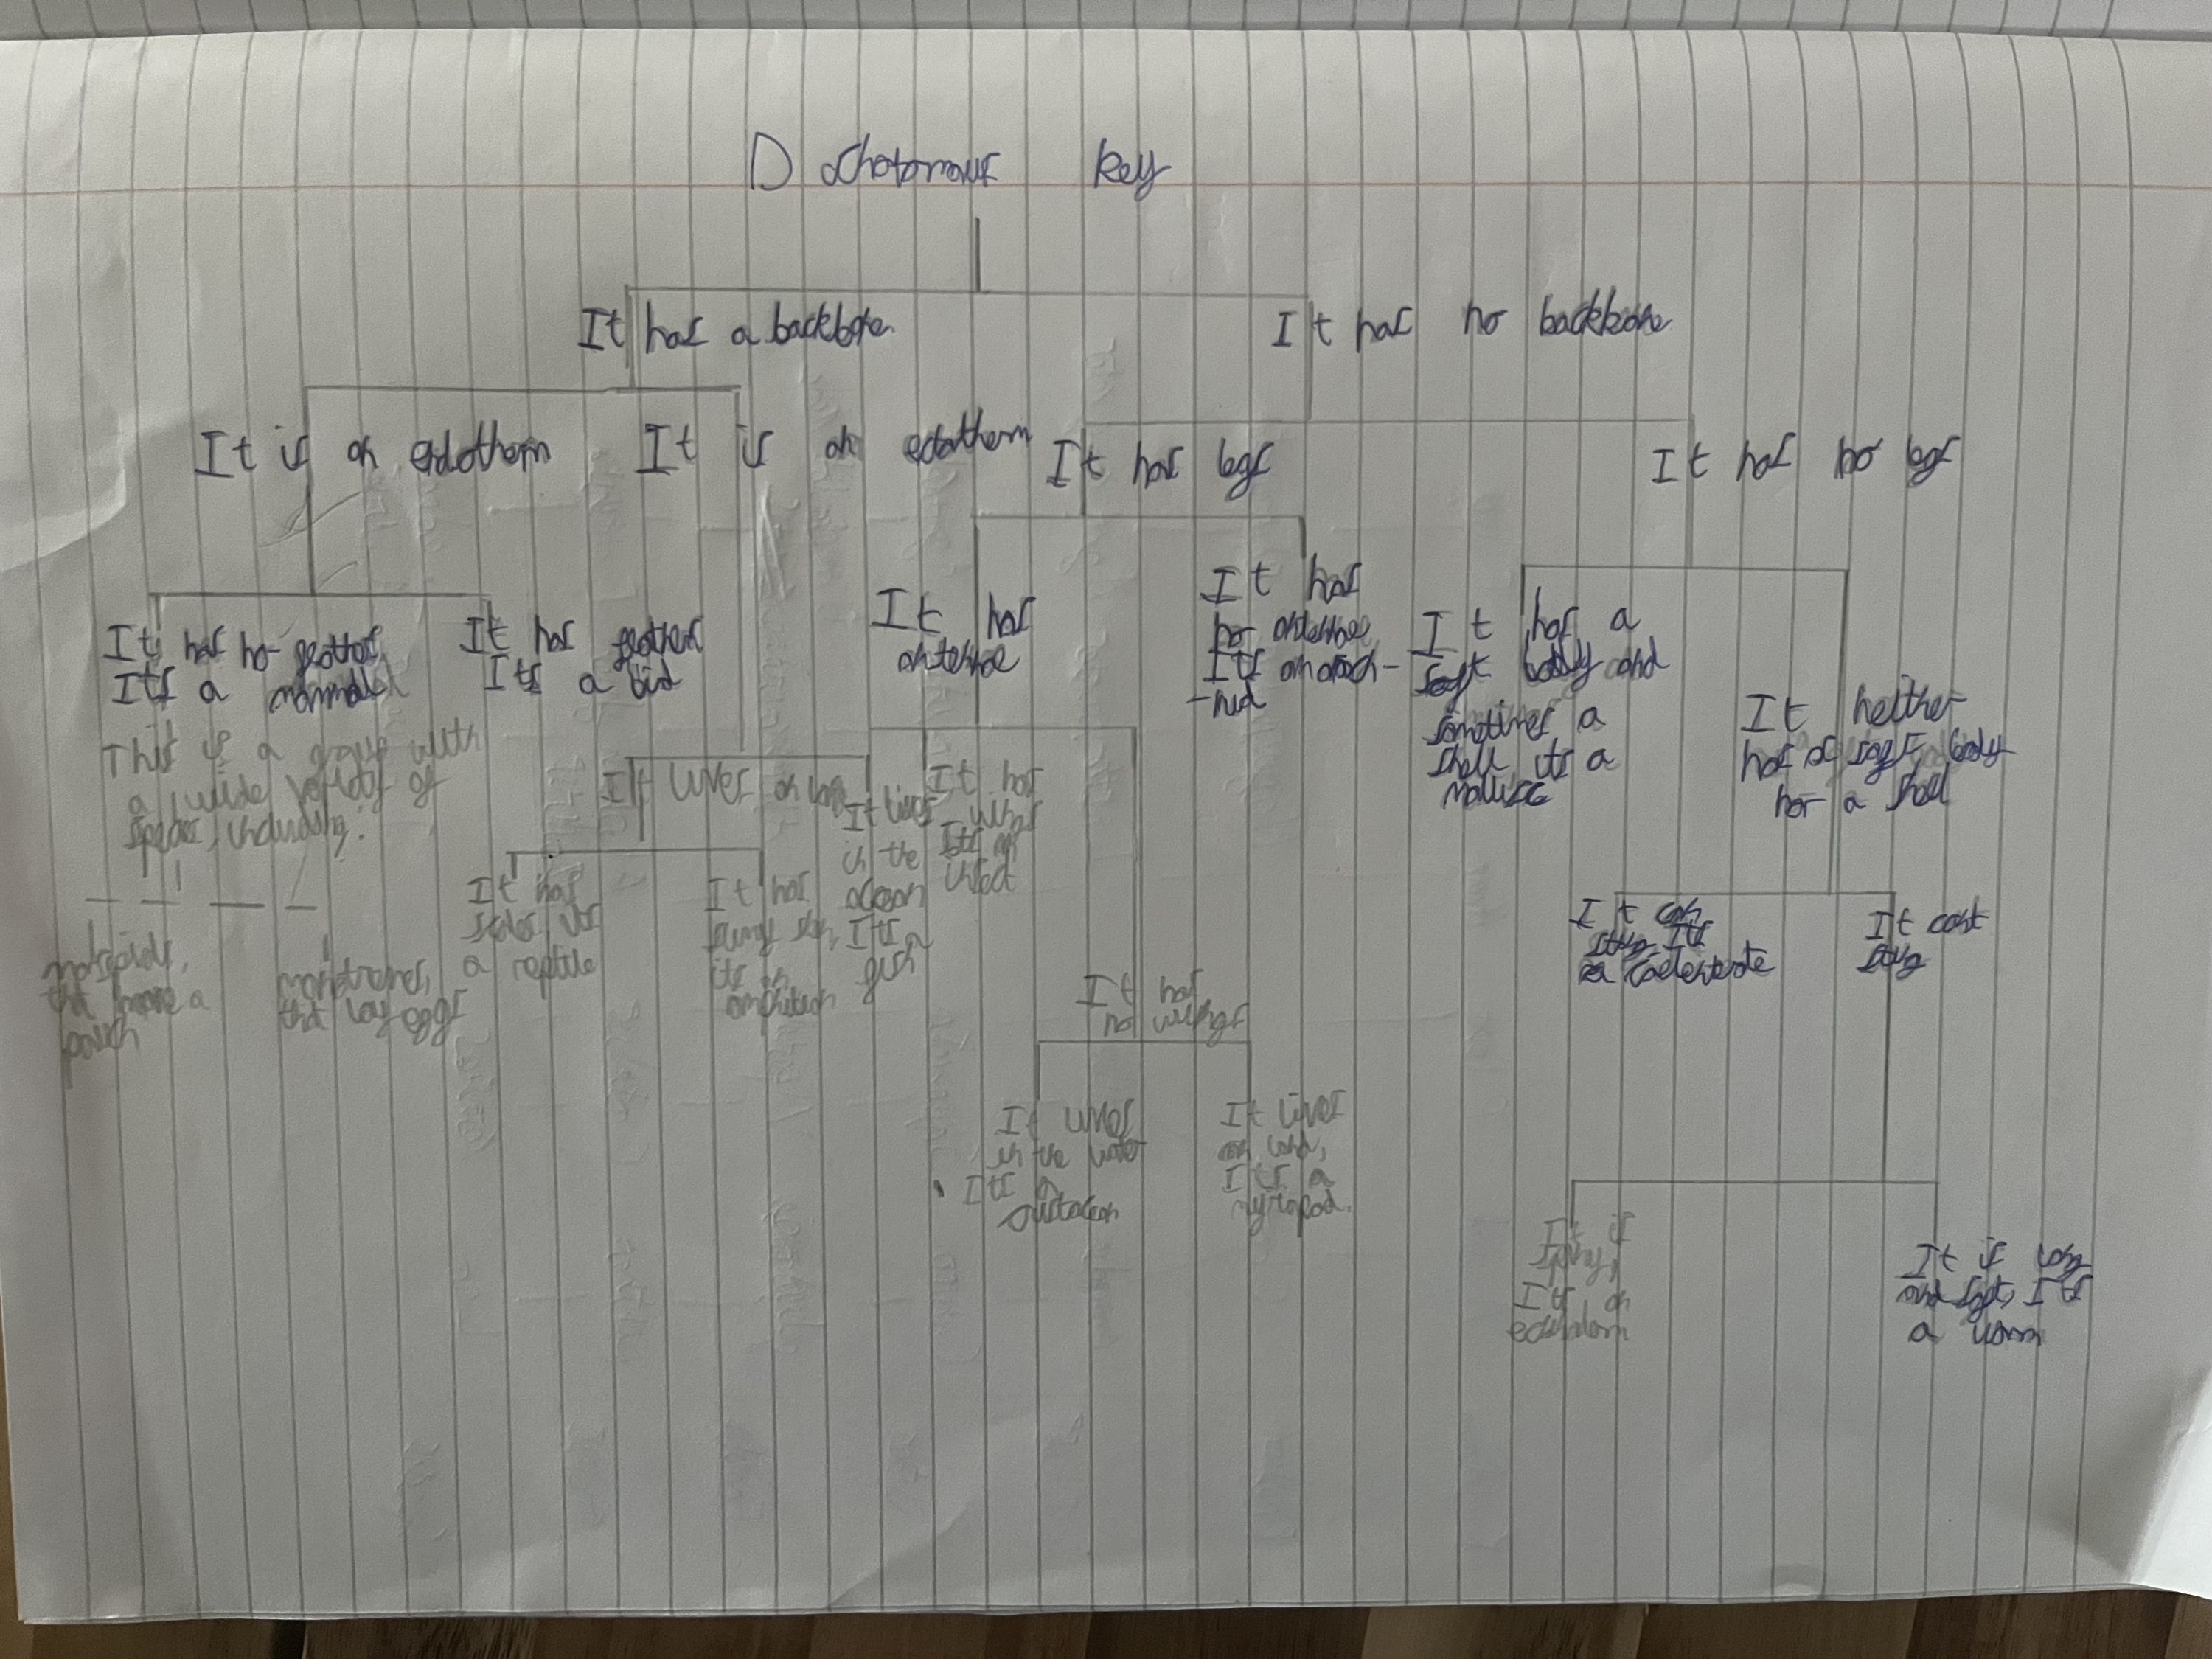 Dichotomous key
It has a backbone
It has no backbone
It is an endotherm
It is an ectotherm
It has legs
It has no legs
It has no feathers
It's a mammal
This is a group with
a wide variety of
species, including:
marsupials,
that have a
pouch
monotremes,
that lay eggs
It has feathers
It's a bird
It lives on land
It has
scales, its
a reptile
It has
slimy skin,
its an
amphibian
It lives
in the
ocean
Its a
fish
It has
antennae
It has
wings
Its an
insect
It has
no wings
It lives
in the water
Its a
crustacean
It lives
on land,
Its a
myriapod.
It has
no antennae
Its an arach-
-nid
It has a
soft body and
sometimes a
shell its a
mollusc
It neither
has a soft body
nor a shell
It can
sting Its
a Coelenterate
It cant
sting
It is
spiny,
Its an
echinoderm
It is long
and soft, Its
a worm